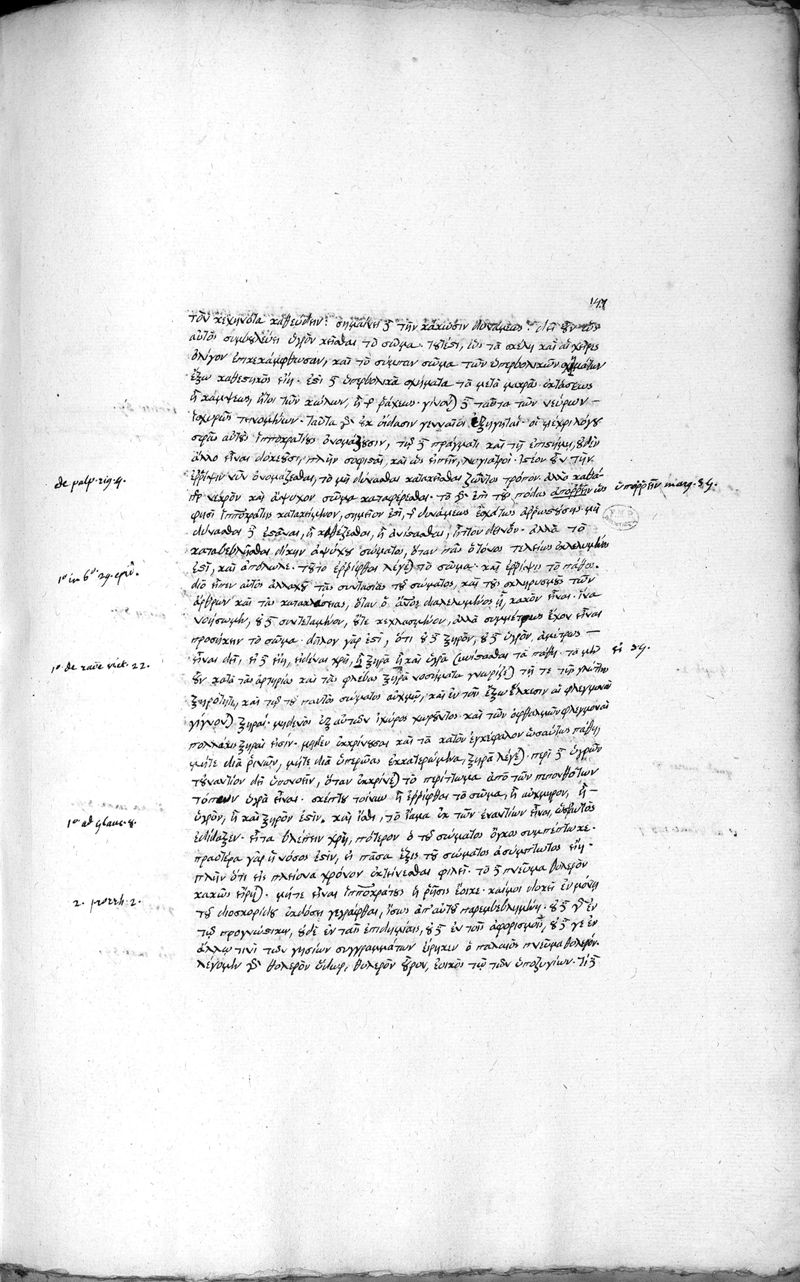 τὸν κεχηνότα καθεύδειν· σημαίνει δὲ τὴν κάκωσιν δυνάμεως· δεῖ οὖν
αὐτὸς συμβουλεύει ὑγρὸν κεῖσθαι τὸ σῶμα· τουτέστι, ὡς τὰ σκέλη καὶ αἱ χεῖρες
ὀλίγον ἐπικεκάμφθωσαν, καὶ τὸ σύμπαν σῶμα τῶν ὑπερβολικῶν σχημάτων
ἔξω καθεστηκὸς εἴη· ἐστὶ δὲ ὑπερβολικὰ σχήματα τὰ μετὰ μακρᾶς ἐκτάσεως
ἢ κάμψεως, ἤτοι τῶν κώλων, ἢ τῆς ῥάχεως· γίνεται δὲ ταῦτα τῶν νεύρων
ἰσχυρῶς τεινομένων· ταῦτα οἱ μέχρι λόγου
σφᾶς αὐτοὺς ἱπποκρατείους ὀνομάζουσιν, τοῖς δὲ πράγμασι καὶ τῇ ἐπιστήμῃ, οὐδὲν
ἄλλο εἶναι δοκοῦσι, πλὴν σοφισταὶ, καὶ ὡς εἰπεῖν, λογίατροι· ἰστέον οὖν τὴν
ἔρριψιν νῦν ὀνομάζεσθαι, τὸ μὴ δύνασθαι κατακεῖσθαι ζῶντος τρόπον· ἀλλὰ καθά-
περ νεκρὸν καὶ ἄψυχον σῶμα καταφέρεσθαι· τὸ γὰρ ἐπὶ τοὺς πόδας ὑπορρεῖν ὥς
φησι ἱπποκράτης κατακείμενον, σημεῖόν ἐστι, τῆς δυνάμεως ἐσχάτως ἀρρωστούσης· μὴ
δύνασθαι δὲ ἑστάναι, ἢ καθέζεσθαι, ἢ ἀνίστασθαι, ἧττον δεινόν· ἀλλὰ τὸ
καταβεβλῆσθαι δίκην ἀψύχου σώματος, ὅταν πᾶς ὁ τόνος τελείως ἐκλελυμένος
ἐστὶ, καὶ ἀπόλωλε· τοῦτο ἐρρῖφθαι λέγεται τὸ σῶμα· καὶ ἔρριψις τὸ πάθος·
διὸ εἶπεν αὐτὸς ἀλλαχοῦ τὰς συντάσιας τοῦ σώματος, καὶ τοὺς σκληρυσμοὺς τῶν
ἄρθρων καὶ τὰς κατακλάσιας, ὅταν ὁ ἄνθρωπος διαλελυμένος ᾖ, κακὸν εἶναι· ἵνα
νοήσωμεν, οὐδὲ συντεταμένον, οὔτε κεκλασμένον, ἀλλὰ συμμέτρως ἔχον εἶναι
προσήκειν τὸ σῶμα· δῆλον γάρ ἐστι, ὅτι οὐδὲ ξηρὸν, οὐδὲ ὑγρὸν, ἀμέτρως
εἶναι δεῖ, εἰ δὲ εἴη, εἰδέναι χρὴ, ᾗ ξηρὰ ᾗ καὶ ὑγρὰ συνίστασθαι τὰ πάθη· τὰ μὲν
οὖν κατὰ τὰς ἀρτηρίας καὶ τὰς φλέβας ξηρὰ νοσήματα γνωρίζεται τῇ τε τῆς γλώττης
ξηρότητι, καὶ τῷ τοῦ παντὸς σώματος αὐχμῷ, καὶ ἐν τοῖς ἔξω ἕλκεσιν αἱ φλεγμοναὶ
γίγνονται ξηραί· μηδενὸς ἐξ αὐτῶν ἰχῶρος χωροῦντος· καὶ τῶν ὀφθαλμῶν φλεγμοναὶ
πολλάκις ξηραί εἰσιν· μηδὲν ἐκκρίνουσαι καὶ τὰ κατὰ τὸν ἐγκέφαλον ὡσαύτως πάθη,
μήτε διὰ ῥινῶν, μήτε διὰ ὑπερῴας ἐκκαθαιρόμενα, ξηρὰ λέγεται· περὶ δὲ ὑγρῶν
τοὐναντίον δεῖ ὑπονοεῖν, ὅταν ἐκκρίνεται τὸ περίττωμα ἀπὸ τῶν πεπονθότων
τόπων ὑγρὰ εἶναι· σκέπτου τοίνυν ἢ ἐρρῖφθαι τὸ σῶμα, ἢ αὐχμηρὸν, ἢ
ὑγρὸν, ἢ καὶ ξηρόν ἐστιν· καὶ ἴσθι, τὸ ἴαμα ἐκ τῶν ἐναντίων εἶναι, ὡς αὐτὸς
ἐδίδαξεν· εἶτα βλέπειν χρὴ, πότερον ὁ τοῦ σώματος ὄγκος συμπέπτωκε·
πραοτέρα γὰρ ἡ νόσος ἐστὶν, εἰ πᾶσα ἕξις τοῦ σώματος ἀσύμπτωτος εἴη·
πλὴν ὅτι εἰς πλείονα χρόνον ἐκτείνεσθαι φιλεῖ· τὸ δὲ πνεῦμα θολερὸν
κακῶς εἴρηται· μήτε εἶναι ἱπποκράτους ἡ ῥῆσις ἔοικε· καί μοι δοκεῖ ἐν μόνῃ
τῇ διοσκορίδου ἐκδόσει γεγράφθαι, ἴσως ἀπ' αὐτοῦ παρεμβεβλημένη· οὐδὲ γὰρ ἐν
τῷ προγνωστικῷ, οὐδὲ ἐν ταῖς ἐπιδημίαις, οὐδὲ ἐν τοῖς ἀφορισμοῖς, οὐδέ γε ἐν
ἄλλῳ τινὶ τῶν γνησίων συγγραμμάτων εὕρηκεν ὁ παλαιὸς πνεῦμα θολερόν·
λέγομεν γὰρ θολερὸν ὕδωρ, θολερὸν οὖρον, ἐοικὸς τῷ τῶν ὑποζυγίων· τί δὲ
de palp. rig. 4.
1º in 6º. 29. epid.
1º de rat. vict. 22.
1º ad Glauc. 8.
2. porrh. 2.
ὑπορρεῖν marg. 84.
εἰ 34.